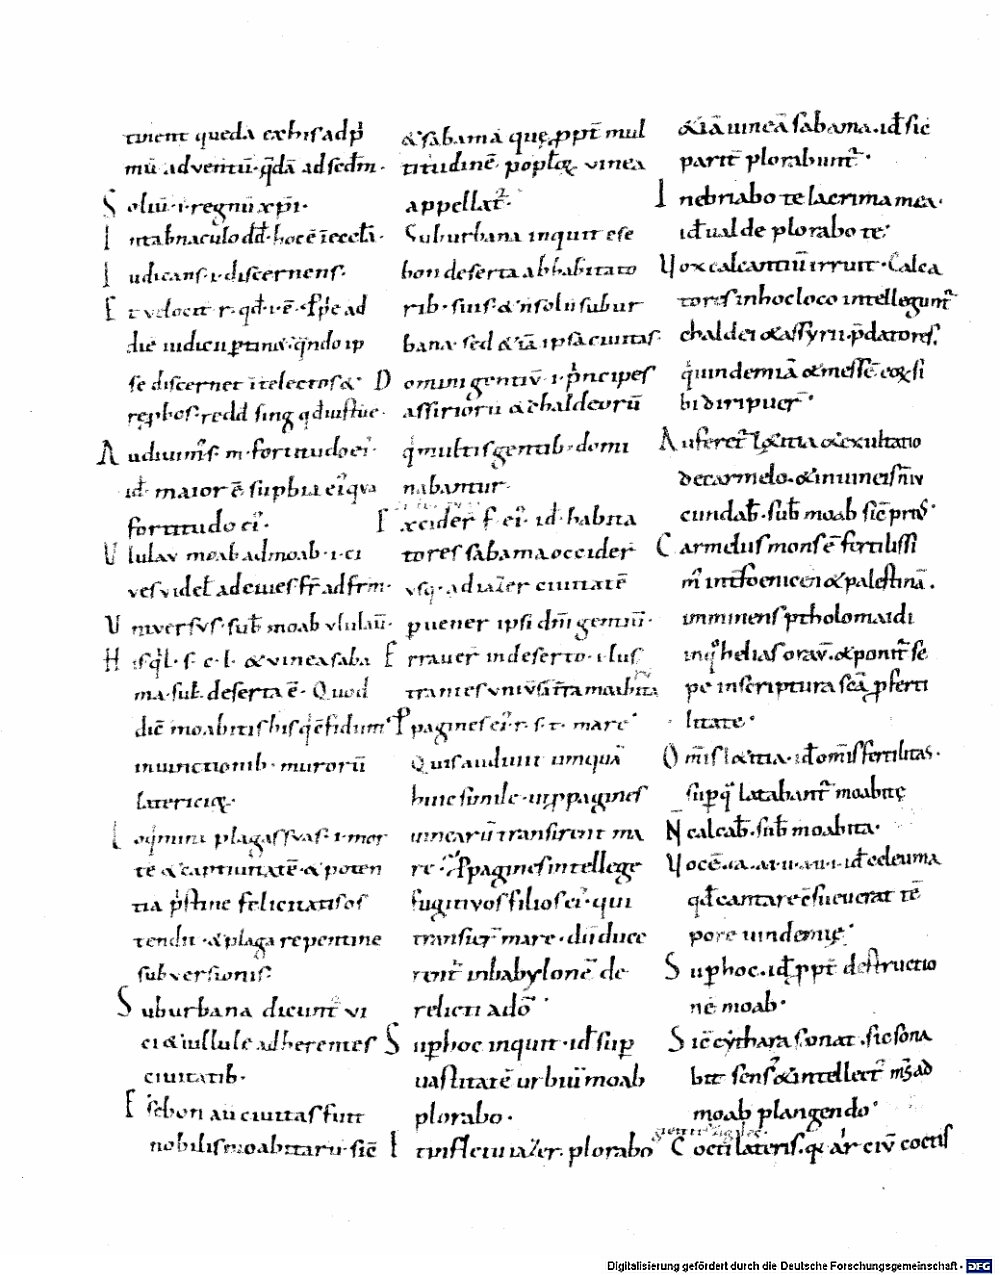 tinent queda ex his ad p̄
mū adventū· q̄dā ad sedm̄·
Soliū·i·regnū xp̄i·
Intab̄naculo dd̄·hoc ē ī eccl̄a·
Iudicans·i·discernens·
Et velocit̄ r· qd̄·i·ē·
diē iudicii ꝑtin&· q̄ndo ip
se discernet ītelectos &
rep̄bos·redd̄ sing̅ qd̄ iustūe·
Audiuim᷒·m·fortitudo ei᷒·
id̄ maior ē supb̄ia ei᷒ q̄va
fortitudo ei᷒·
Ululav̄ moab ad moab·i·ci
ves videl̄ ad ciues fr̄ ad frm̄·
Universus·sub̄ moab ululau·
His q̄ l·s·c·l· & vinea saba
ma·sub̄·deserta ē· Quod
diē moabitis his q̄ cfidunt
in uinctionib· murorū
latericiꝝ·
Loq̄mini plagas suas·i·mor
tē & captiuitatē·& poten
tia p̄stine felicitatis os
tendit·& plaga repentine
subversionis·
Suburbana dicunt᷒ vi
ci & uillule adherentes
ciuitatib·
Esebon aū ciuitas fuit
nobilis moabitarū·sic̄
& sabama quę ꝓpt̄ mul
titudinē popl̄oꝝ vinea
appellat᷒·
Suburbana inquit ese
bon deserta ab habitato
rib·suis·& n̄ solū subur
bana·sed &iā ipsa ciuitas·
Domini gentiū·i·p̄ncipes
assiriorū & chaldeorū
q̄ multis gentib·domi
nabantur·
Excider̄ f·ei᷒·id̄·habita
tores sabama occider̄
usq·ad iazer ciuitatē
puener̄ ipsi dn̄i gentiū·
Erraver̄ in deserto·i·lus
trantes univ̄sā tr̄ā moabitā
Ppagines ei᷒·r·s·t·mare
Quis audiuit umquā
huic simile·ut ꝓpagines
uinearū transirent ma
re· Ppagines intellege
fugitivos filios ei᷒·qui
transier̄ mare·dū duce
rent᷒ in babylonē de
relicti a dō·
Sup hoc inquit·id̄ sup
uastitatē urbiū moab
plorabo·
In fletu iazer·plorabo
&iā uineā sabama·id̄ sic
parit̄ plorabunt᷒·
Inebriabo te lacrima mea·
id̄ ualde plorabo te·
Vox calcantiū irruit·Calca
tores in hoc loco intellegunt᷒
chaldei & assyrii·p̄datores·
q̄ uindemiā & messē eoꝝ si
bi diripuer̄·
Auferet᷒ l&itia & exultatio
de carmelo·& in uineis n̄ iv
cundab̄·sub̄ moab sic̄ pri᷒·
Carmelus mons ē fertilissi
m᷒ int̄ foenicen & palestinā·
imminens ptholomaidi
in q̄ helias orav̄·& ponit᷒ se
pe in scriptura sc̄a ꝓ ferti
litate·
Om̄is l&itia·id̄ om̄is fertilitas·
sup q̄ l&abant᷒ moabitę
N̄ calcab̄·sub̄ moabita·
Vocē·ua·ar·u·au·i·id̄ celeuma
qd̄ cantare c̄sueuerat tē
pore uindemię·
Sup hoc·id̄ ꝓpt̄ destructio
nē moab·
Sic̄ cythara sonat·sic sona
bit sens᷒ & intellect᷒ ms̄ ad
moab plangendo·
Cocti lateris·q̄ ar civ̄ coctis
Digitalisierung gefördert durch die Deutsche Forschungsgemeinschaft - DFG